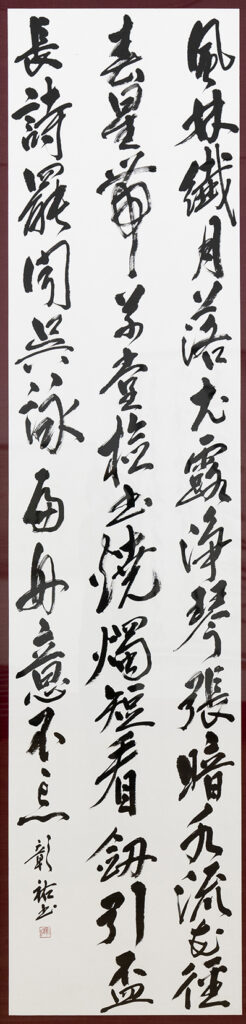 風林纖月落衣露淨琴張暗水流花徑
春星帶草堂檢書燒燭短看劔引盃
長詩罷聞吳詠扁舟意不忘
彰祐書